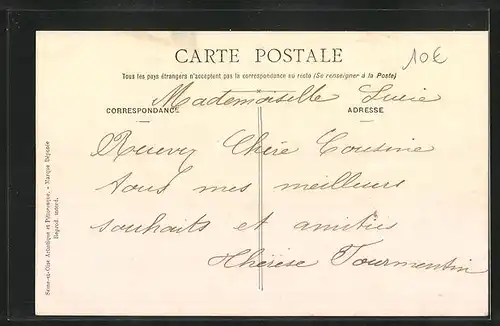 CARTE POSTALE
10€
Tous les pays étrangers n'acceptent pas la correspondance au recto (Se renseigner à la Poste)
Mademoiselle Lucie
CORRESPONDANCE
ADRESSE
Recevez Chère Cousine
tous mes meilleurs
souhaits et amitiés
Thérèse Tourmentin
Seine-et-Oise Artistique et Pittoresque. - Marque Déposée
Reprod. interd.